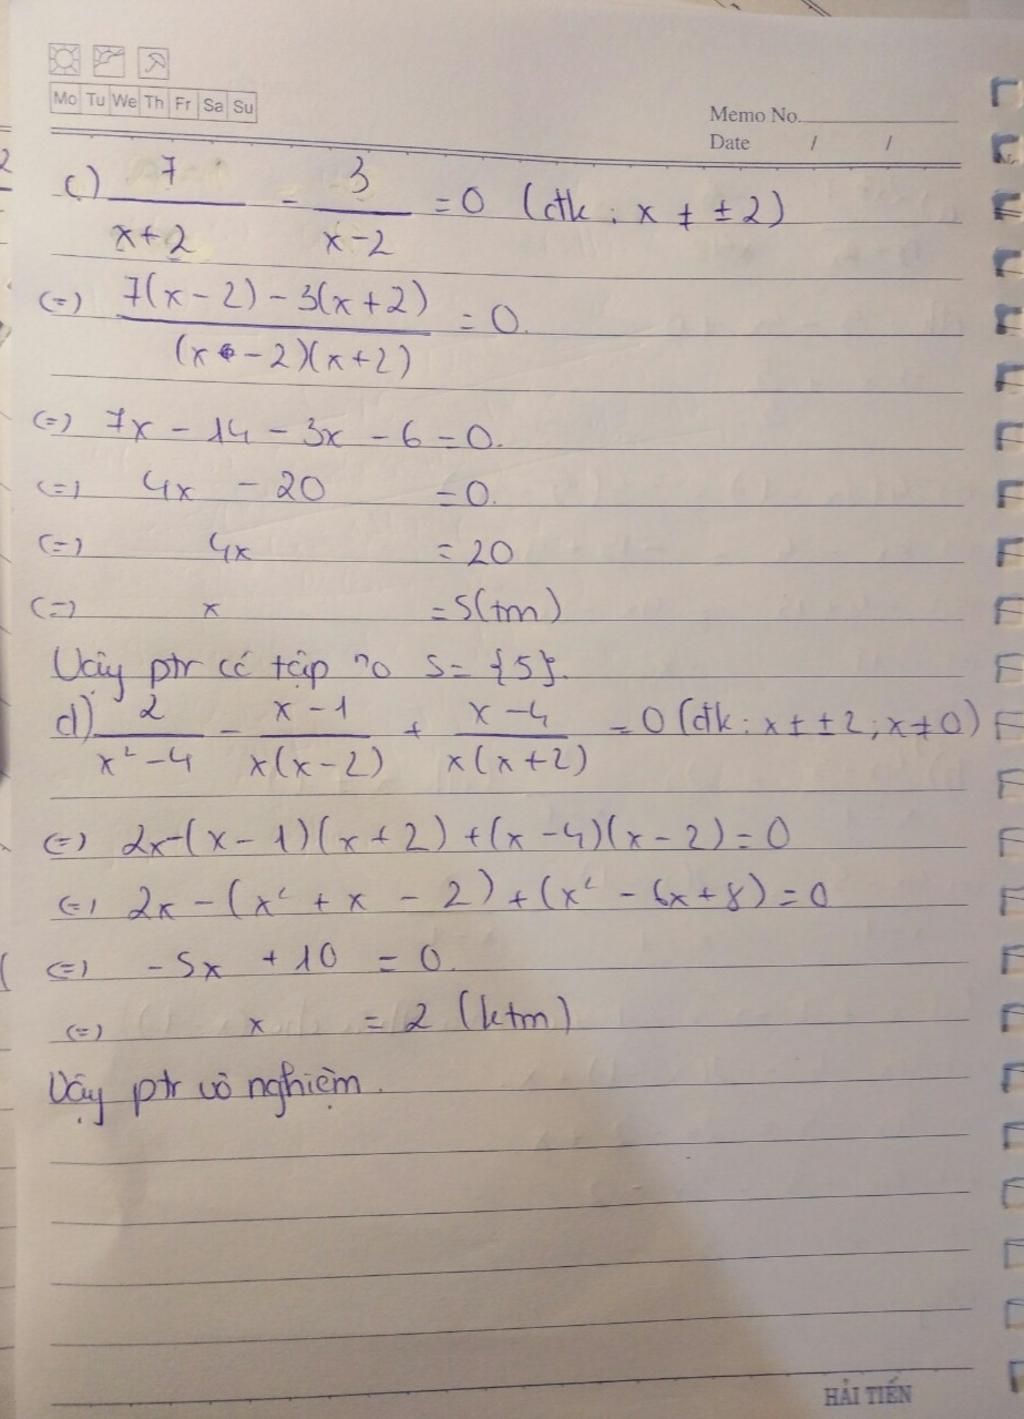 Mo Tu We Th Fr Sa Su
Memo No.
Date / /
c) 7/(x+2) - 3/(x-2) = 0 (đk: x ≠ ±2)
(=) (7(x-2) - 3(x+2))/((x-2)(x+2)) = 0.
(=) 7x - 14 - 3x - 6 = 0.
(=) 4x - 20 = 0.
(=) 4x = 20
(=) x = 5(tm)
Vậy ptr có tập no S = {5}.
d) 2/(x²-4) - (x-1)/(x(x-2)) + (x-4)/(x(x+2)) = 0 (đk: x ≠ ±2; x ≠ 0)
(=) 2x-(x-1)(x+2)+(x-4)(x-2)=0
(=) 2x-(x²+x-2)+(x²-6x+8)=0
(=) -5x +10 = 0.
(=) x = 2 (ktm)
Vậy ptr vô nghiệm.
HẢI TIẾN